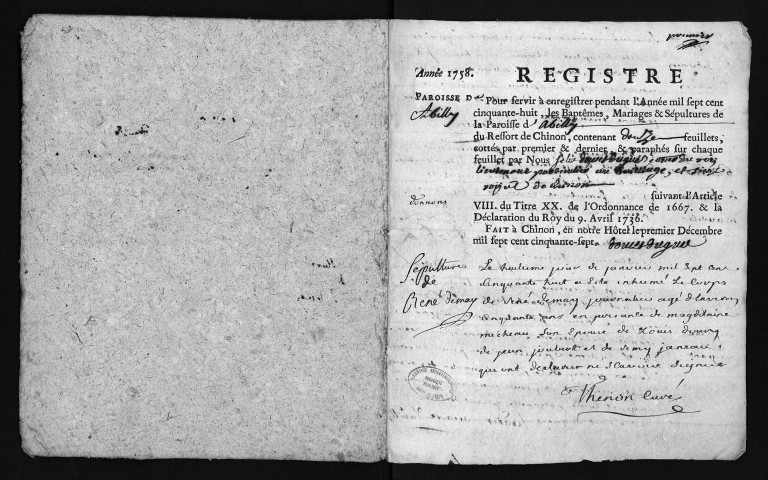 premier
Année 1758.
REGISTRE
PAROISSE D
Abilly
Pour servir à enregistrer pendant l'Année mil sept cent
cinquante-huit, les Baptêmes, Mariages & Sépultures de
la Paroisse d'Abilly
du Ressort de Chinon, contenant douze feuillets,
cottés par premier & dernier, & paraphés sur chaque
feuillet par Nous
royal de Chinon
donnons
suivant l'Article
VIII. du Titre XX. de l'Ordonnance de 1667. & la
Déclaration du Roy du 9. Avril 1736.
FAIT à Chinon, en notre Hôtel le premier Décembre
mil sept cent cinquante-sept.
Sépulture
de
René demay
Le huitieme jour de janvier mil sept cen
cinquante huit a este inhumé Le Corps
de René demay journalier agé d'environ
cinquante ans en presence de magdelaine
micheau son Epouse de Louis demay
de jean joubert et de remy janeau
qui ont declarer ne scavoir signer
Thenon Curé